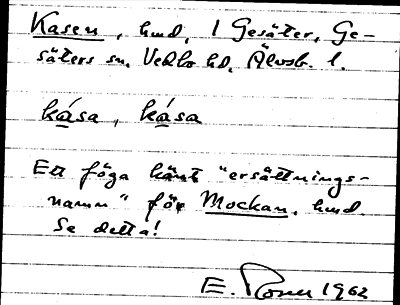 Kasen, hmd, 1 Gesäter, Ge-
säters sn, Vedbo hd, Älvsb. l.
kása, kása
Ett föga känt "ersättnings-
namn" för Mockan, hmd.
Se detta!
E. 1962